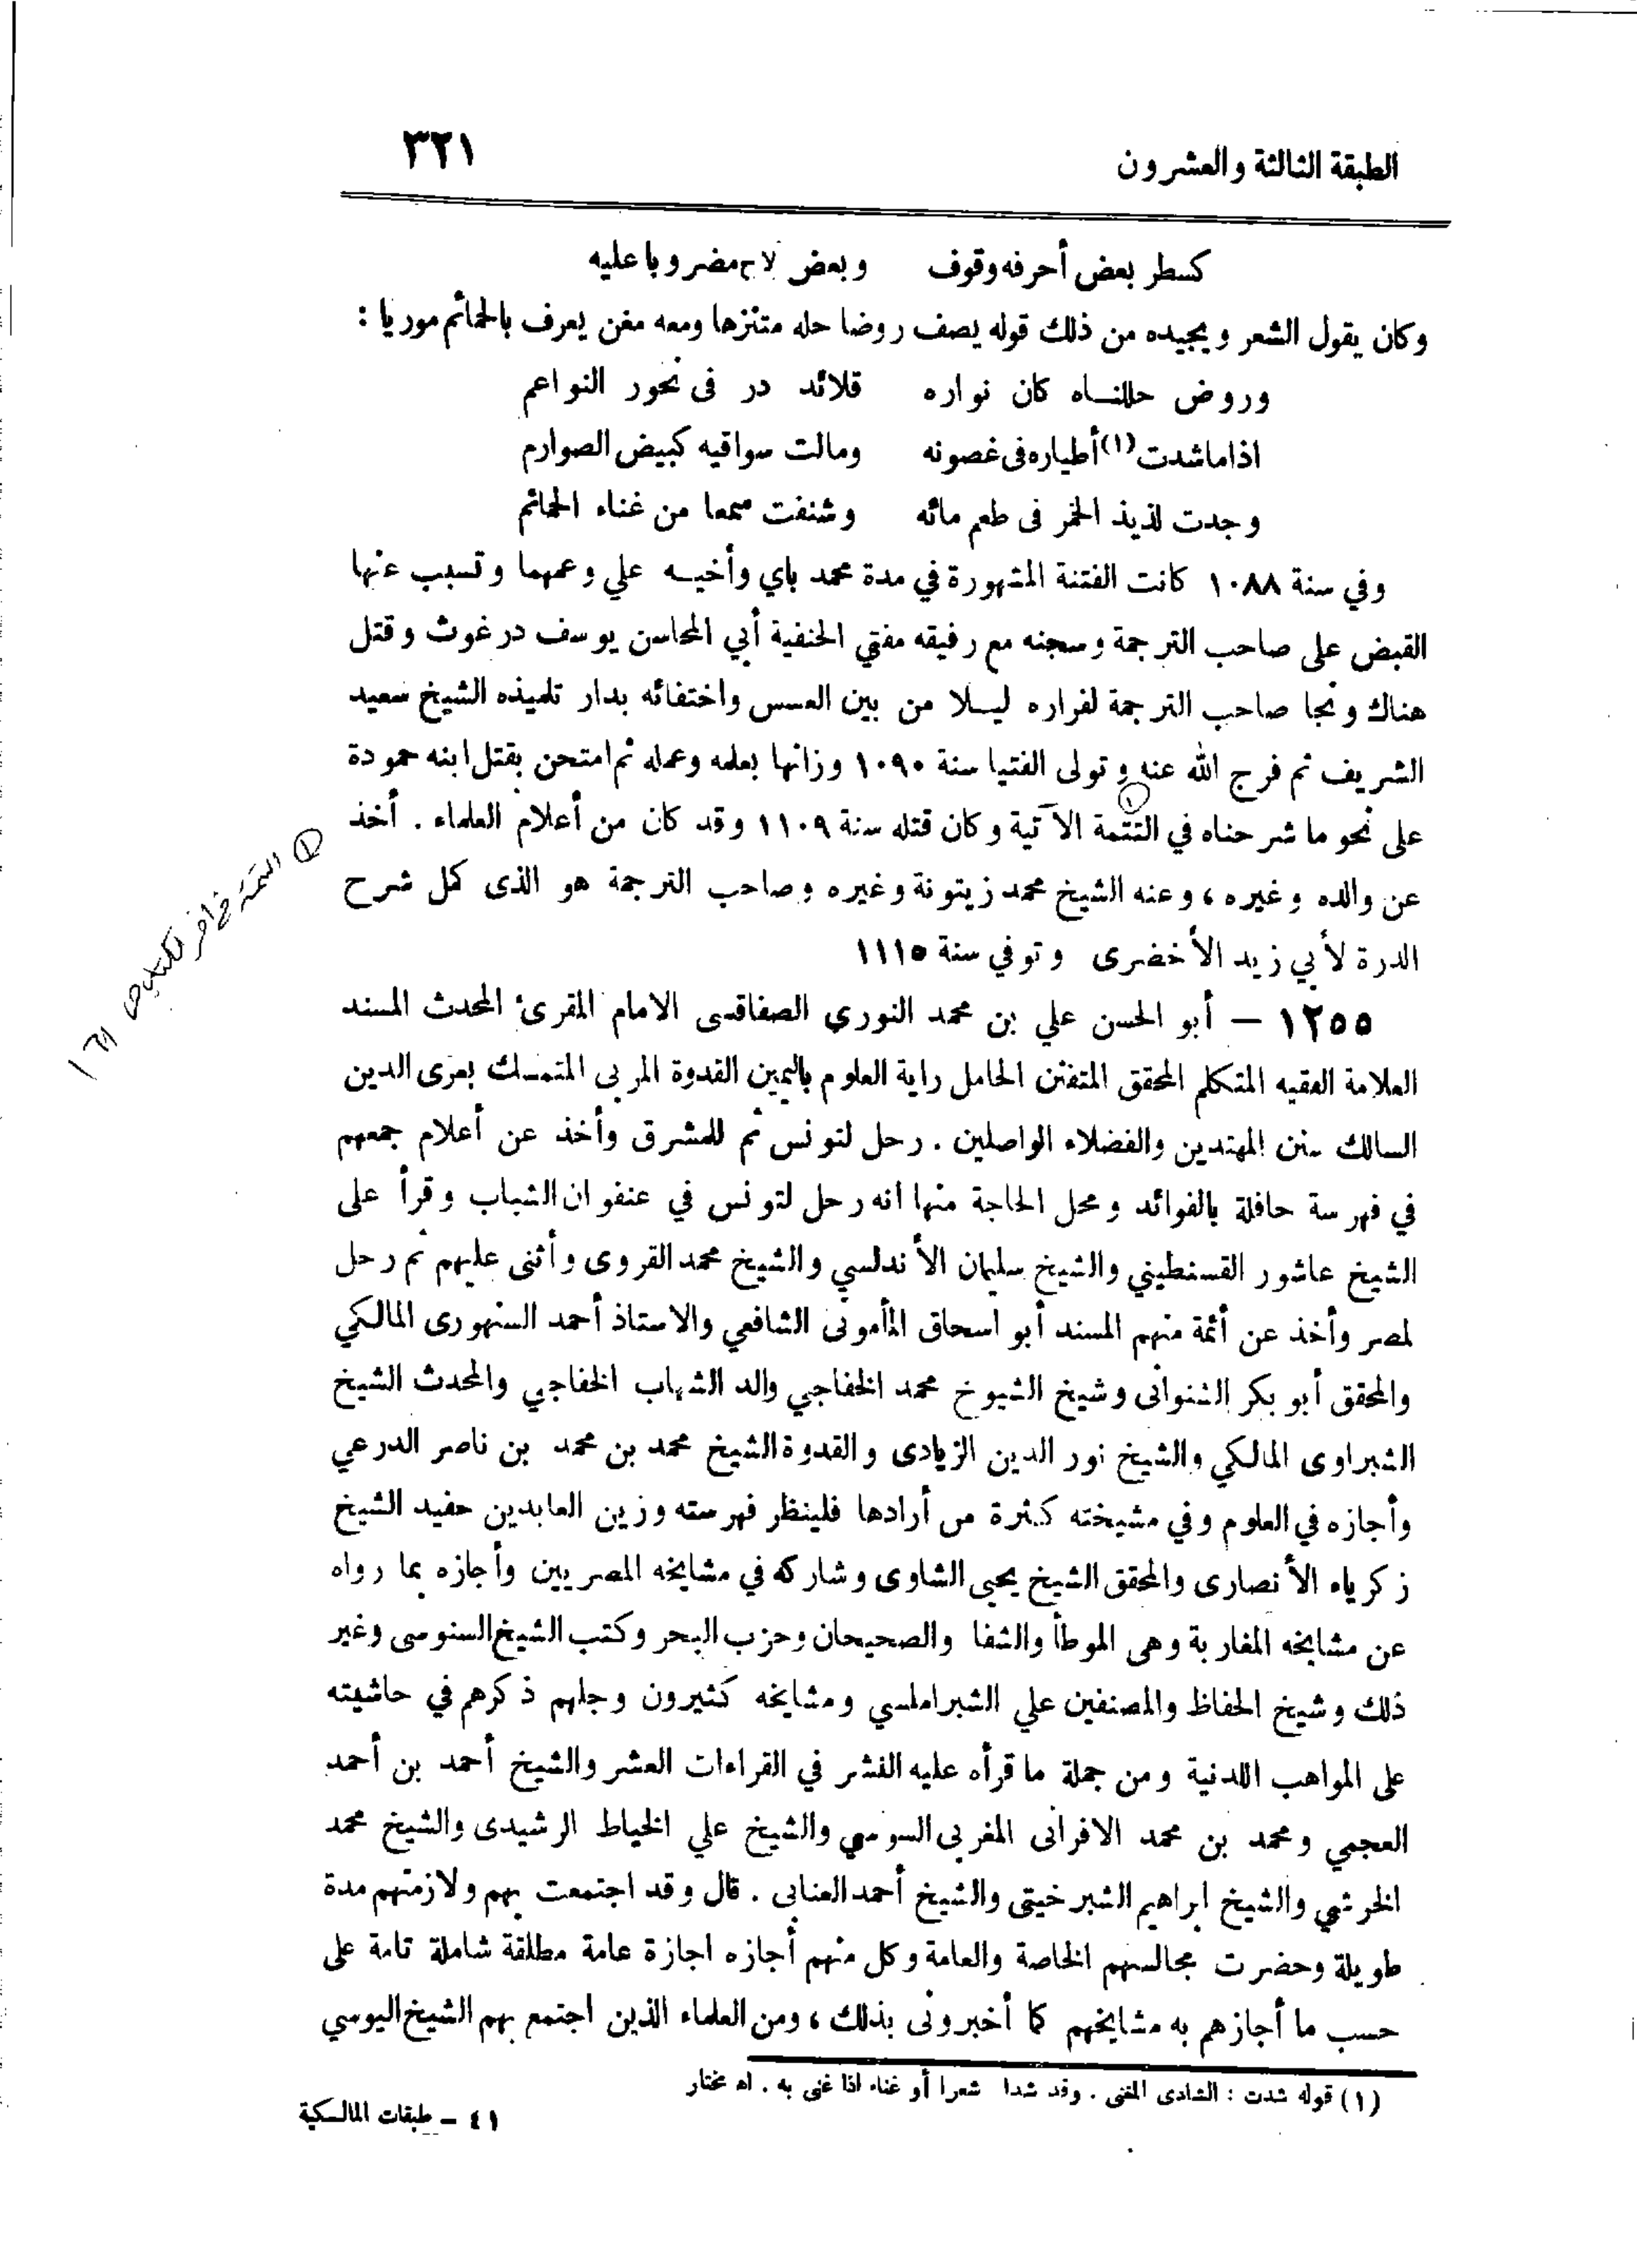 الطبقة الثالثة والعشرون ٣٢١
كسطر بعض أحرفه وقوف وبعض لاح مضروبا عليه
وكان يقول الشعر ويجيده من ذلك قوله يصف روضا حله متنزها ومعه مغن يعرف بالحمائم موريا :
وروض حللناه كان نواره قلائد در فى نحور النواعم
اذا ما شدت (١) أطياره فى غصونه ومالت سواقيه كبيض الصوارم
وجدت لذيذ الخمر فى طعم مائه وشنفت سمعا من غناء الحمائم
وفي سنة ١٠٨٨ كانت الفتنة المشهورة في مدة محمد باي وأخيه علي وعمهما وتسبب عنها
القبض على صاحب الترجمة وسجنه مع رفيقه مفتي الحنفية أبي المحاسن يوسف درغوث وقتل
هناك ونجا صاحب الترجمة لفراره ليلا من بين العسس واختفائه بدار تلميذه الشيخ سعيد
الشريف ثم فرج الله عنه وتولى الفتيا سنة ١٠٩٠ وزانها بعلمه وعمله ثم امتحن بقتل ابنه حمودة
على نحو ما شرحناه في التتمة الآتية وكان قتله سنة ١١٠٩ وقد كان من أعلام العلماء . أخذ
عن والده وغيره ، وعنه الشيخ محمد زيتونة وغيره وصاحب الترجمة هو الذى كمل شرح
الدرة لأبي زيد الأخضرى وتوفي سنة ١١١٥
١٢٥٥ — أبو الحسن علي بن محمد النوري الصفاقسى الامام المقرئ المحدث المسند
العلامة الفقيه المتكلم المحقق المتفنن الحامل راية العلوم باليمين القدوة المربى المتمسك بعرى الدين
السالك سنن المهتدين والفضلاء الواصلين . رحل لتونس ثم للمشرق وأخذ عن أعلام جمعهم
في فهرسة حافلة بالفوائد ومحل الحاجة منها انه رحل لتونس في عنفوان الشباب وقرأ على
الشيخ عاشور القسنطيني والشيخ سليمان الأندلسي والشيخ محمد القروى وأثنى عليهم ثم رحل
لمصر وأخذ عن أئمة منهم المسند أبو اسحاق المأمونى الشافعي والاستاذ أحمد السنهورى المالكي
والمحقق أبو بكر الشنوانى وشيخ الشيوخ محمد الخفاجي والد الشهاب الخفاجي والمحدث الشيخ
الشبراوى المالكي والشيخ نور الدين الزيادى والقدوة الشيخ محمد بن محمد بن ناصر الدرعي
وأجازه في العلوم وفي مشيخته كثرة من أرادها فلينظر فهرسته وزين العابدين حفيد الشيخ
زكرياء الأنصارى والمحقق الشيخ يحيى الشاوى وشاركه في مشايخه المصريين وأجازه بما رواه
عن مشايخه المغاربة وهى الموطأ والشفا والصحيحان وحزب البحر وكتب الشيخ السنوسى وغير
ذلك وشيخ الحفاظ والمصنفين علي الشبراملسي ومشايخه كثيرون وجلهم ذكرهم في حاشيته
على المواهب اللدنية ومن جملة ما قرأه عليه النشر في القراءات العشر والشيخ أحمد بن أحمد
العجمي ومحمد بن محمد الافرانى المغربى السوسي والشيخ علي الخياط الرشيدى والشيخ محمد
الخرشي والشيخ ابراهيم الشبرخيتى والشيخ أحمد العنابى . قال وقد اجتمعت بهم ولازمتهم مدة
طويلة وحضرت مجالسهم الخاصة والعامة وكل منهم أجازه اجازة عامة مطلقة شاملة تامة على
حسب ما أجازهم به مشايخهم كما أخبرونى بذلك ، ومن العلماء الذين اجتمع بهم الشيخ اليوسي
(١) قوله شدت : الشادى المغنى . وقد شدا شعرا أو غناء اذا غنى به . اه مختار
٤١ — طبقات المالكية
① التتمة في آخر الكتاب ص ١٦١